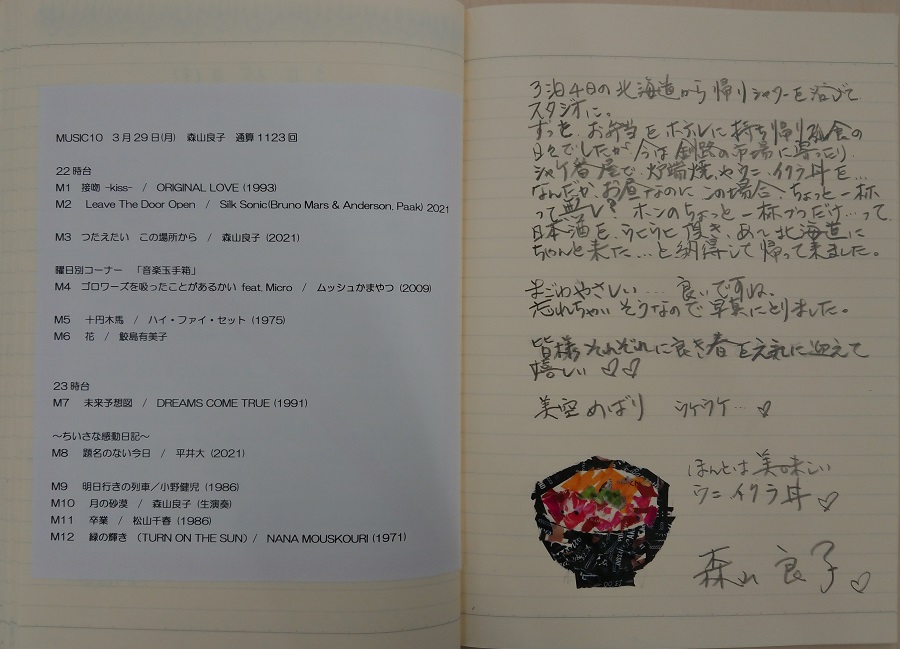 MUSIC10　3月29日(月)　森山良子　通算1123回
22時台
M1　接吻 -kiss-　/　ORIGINAL LOVE (1993)
M2　Leave The Door Open　/　Silk Sonic(Bruno Mars & Anderson. Paak) 2021
M3　つたえたい　この場所から　/　森山良子 (2021)
曜日別コーナー　「音楽玉手箱」
M4　ゴロワーズを吸ったことがあるかい feat. Micro　/　ムッシュかまやつ (2009)
M5　十円木馬　/　ハイ・ファイ・セット (1975)
M6　花　/　鮫島有美子
23時台
M7　未来予想図　/　DREAMS COME TRUE (1991)
～ちいさな感動日記～
M8　題名のない今日　/　平井大 (2021)
M9　明日行きの列車／小野健児 (1986)
M10　月の砂漠　/　森山良子 (生演奏)
M11　卒業　/　松山千春 (1986)
M12　緑の輝き　（TURN ON THE SUN）/　NANA MOUSKOURI (1971)
3泊4日の北海道から帰りシャワーを浴びて
スタジオに。
ずっと、お弁当をホテルに持ち帰り 食の
日々でしたが今は釧路の市場に寄ったり
シャケ番屋で、炉端焼、やウニ、イクラ丼を…
なんだか、お昼なのに この場合、ちょっと一杯
って 無し? ホンのちょっと一杯づつだけ…って
日本酒を、うにうに 頂き、あ～北海道に
ちゃんと来た…と納得して帰って来ました。
まごわやさしい… 良いですね、
忘れちゃいそうなので早速にとりました。
皆様それぞれに良き春を元気に迎えて
嬉しい♡♡
美空めばり　ウケウケ…♡
ほんとは美味しい
ウニイクラ丼♡
森山良子♡